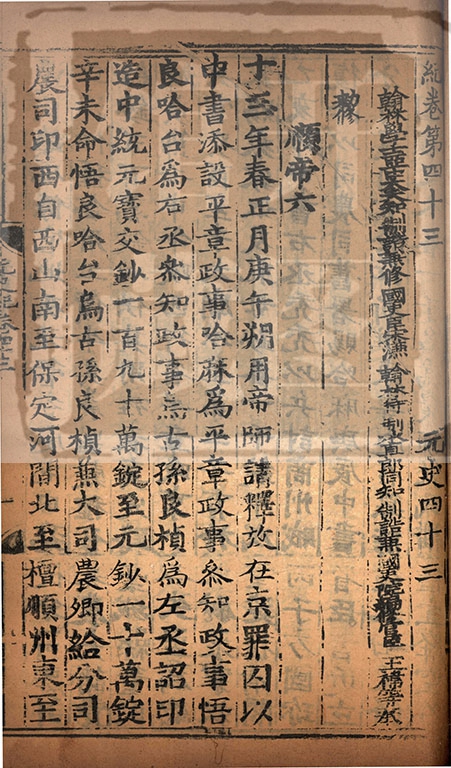 紀卷第四十三 元史四十三
翰林學士亞中大夫知制誥兼修國史臣宋濂 翰林待制承直郎同知制誥兼國史院編修官臣王褘等奉
敕
順帝六
十三年春正月庚午朔用帝師請釋放在京罪囚以
中書添設平章政事哈麻爲平章政事叅知政事悟
良哈台爲右丞叅知政事烏古孫良楨爲左丞詔印
造中統元寶交鈔一百九十萬錠至元鈔一十萬錠
辛未命悟良哈台烏古孫良楨兼大司農卿給分司
農司印西自西山南至保定河間北至檀順州東至